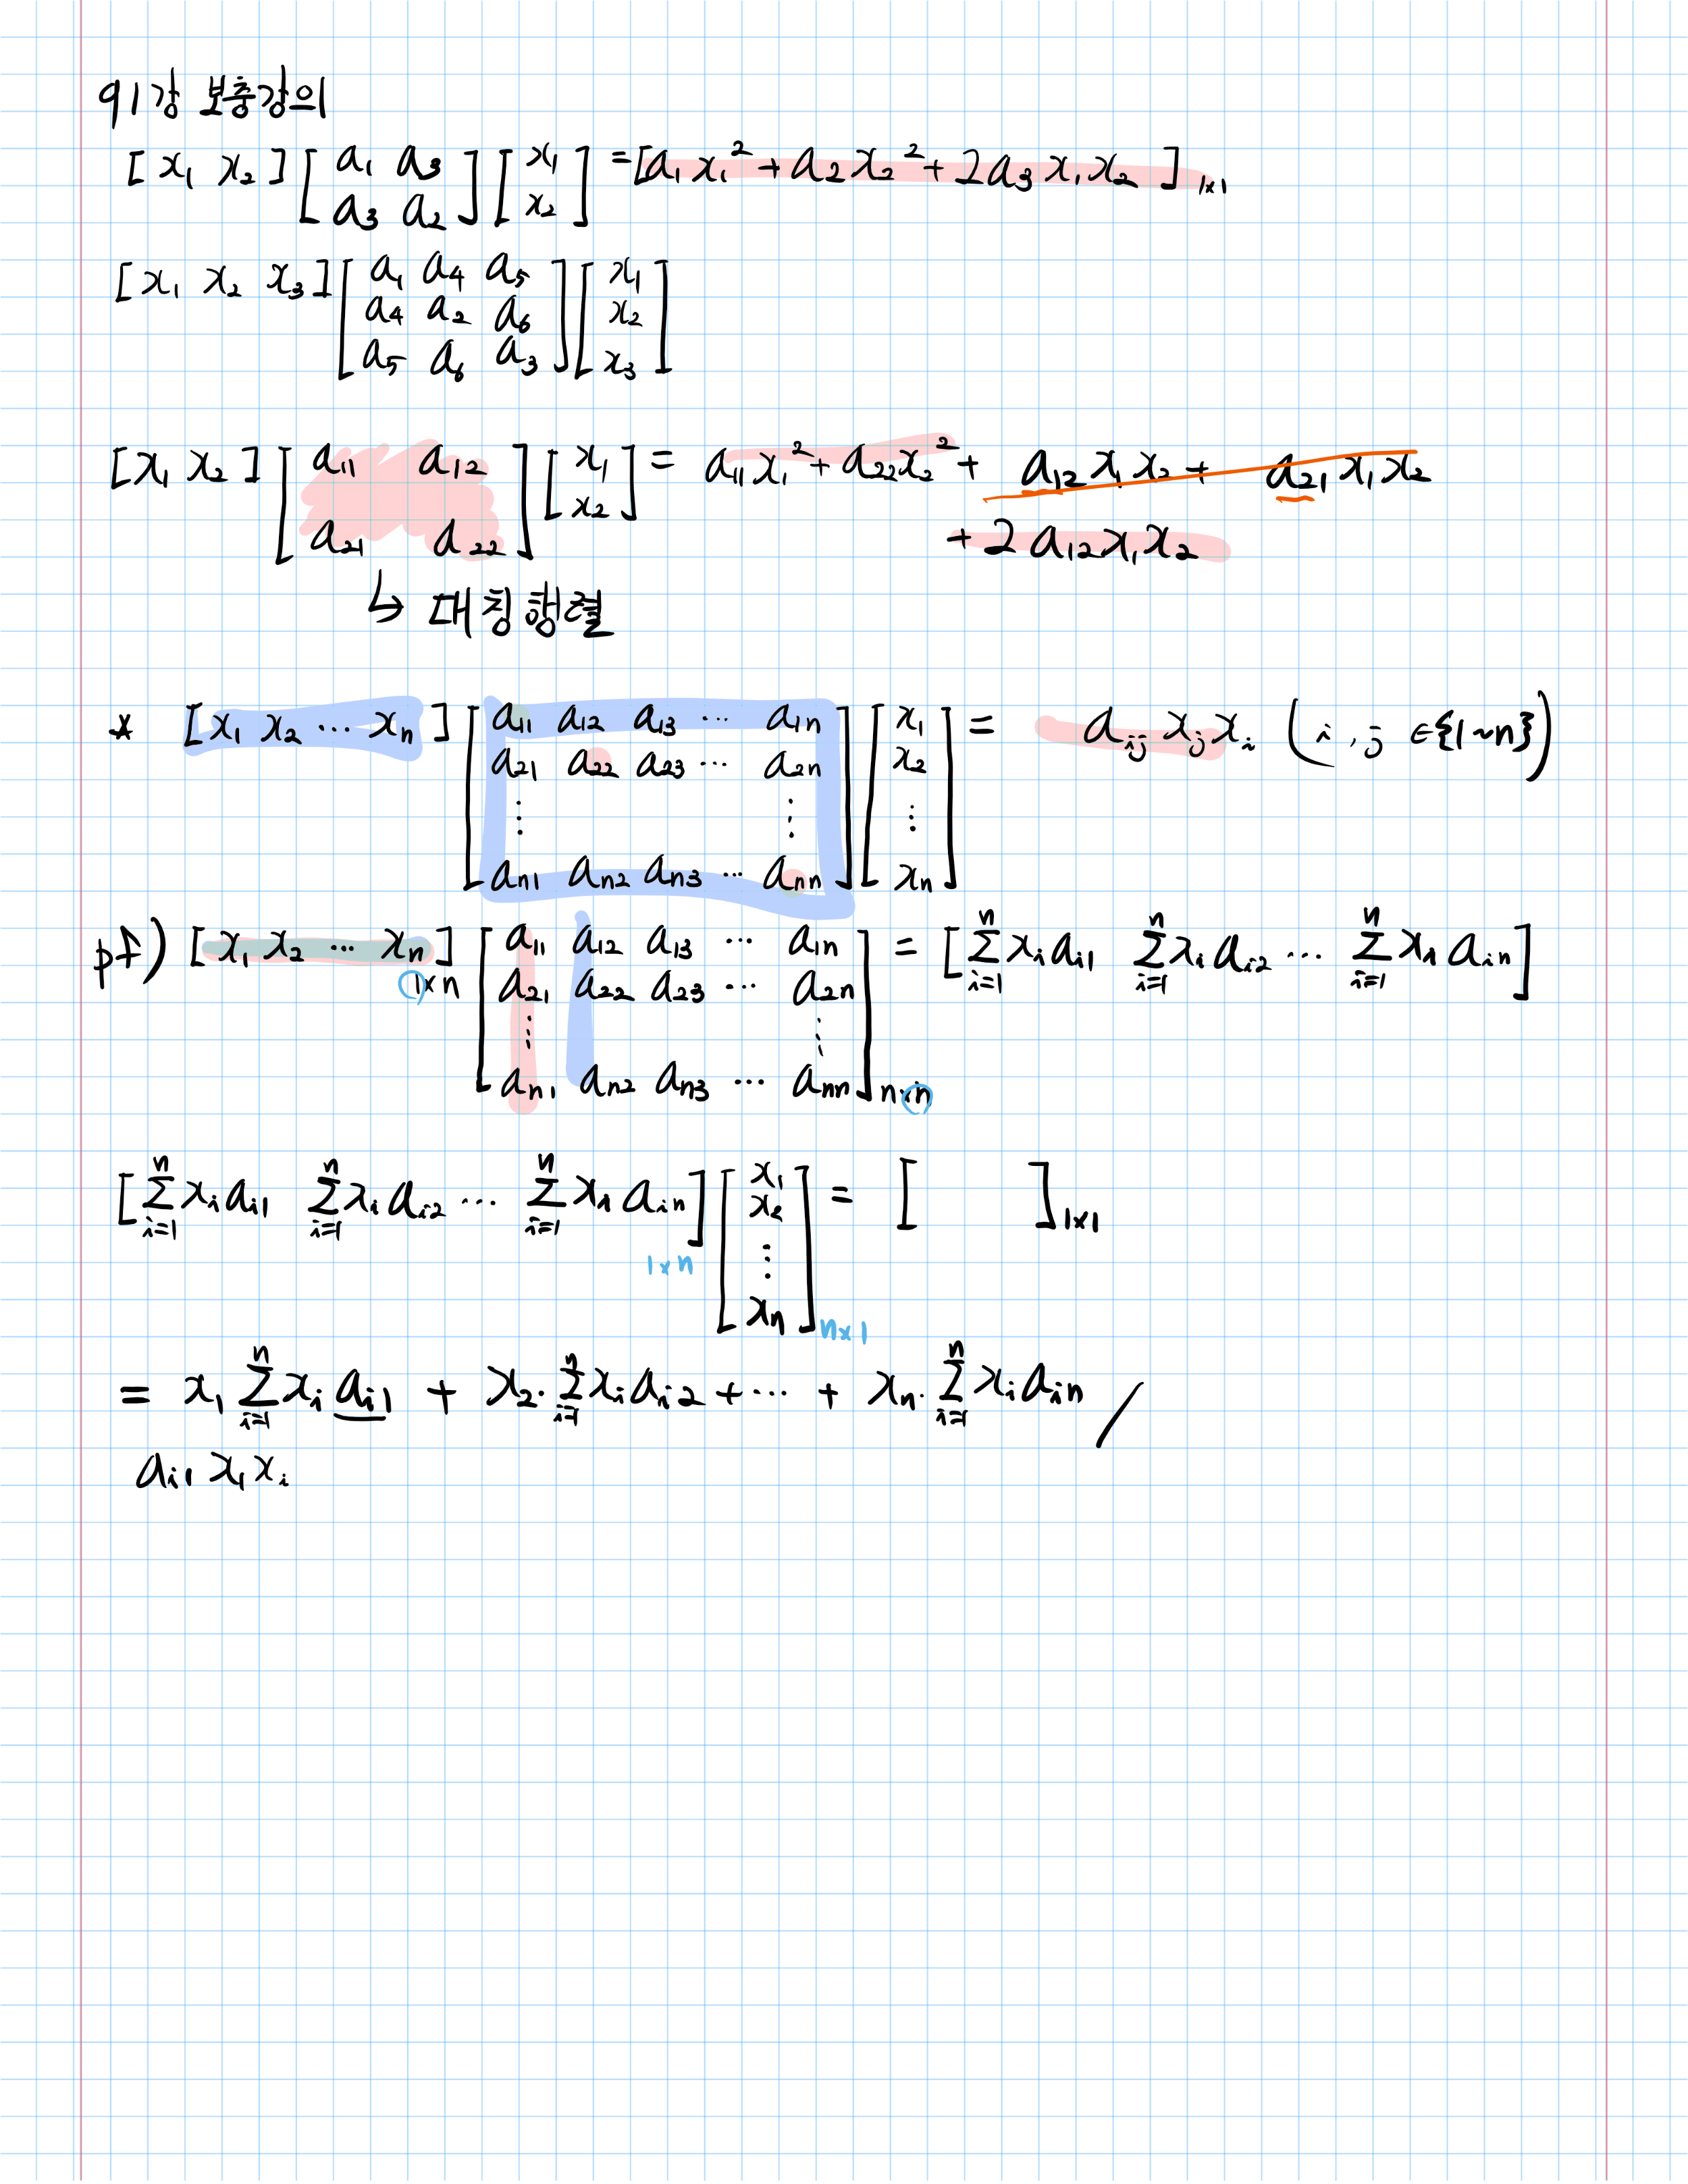 91강 보충강의
[x₁ x₂] [a₁ a₃ ; a₃ a₂] [x₁ ; x₂] = [a₁x₁² + a₂x₂² + 2a₃x₁x₂]₁ₓ₁
[x₁ x₂ x₃] [a₁ a₄ a₅ ; a₄ a₂ a₆ ; a₅ a₆ a₃] [x₁ ; x₂ ; x₃]
[x₁ x₂] [a₁₁ a₁₂ ; a₂₁ a₂₂] [x₁ ; x₂] = a₁₁x₁² + a₂₂x₂² + a₁₂x₁x₂ + a₂₁x₁x₂
+ 2a₁₂x₁x₂
↳ 대칭행렬
* [x₁ x₂ ⋯ xₙ] [a₁₁ a₁₂ a₁₃ ⋯ a₁ₙ ; a₂₁ a₂₂ a₂₃ ⋯ a₂ₙ ; ⋮ ⋮ ; aₙ₁ aₙ₂ aₙ₃ ⋯ aₙₙ] [x₁ ; x₂ ; ⋮ ; xₙ] = aᵢⱼ xⱼ xᵢ (i, j ∈ {1~n})
pf) [x₁ x₂ ⋯ xₙ]₁ₓₙ [a₁₁ a₁₂ a₁₃ ⋯ a₁ₙ ; a₂₁ a₂₂ a₂₃ ⋯ a₂ₙ ; ⋮ ⋮ ; aₙ₁ aₙ₂ aₙ₃ ⋯ aₙₙ]ₙₓₙ = [∑ⁿᵢ₌₁ xᵢaᵢ₁ ∑ⁿᵢ₌₁ xᵢaᵢ₂ ⋯ ∑ⁿᵢ₌₁ xᵢaᵢₙ]
[∑ⁿᵢ₌₁ xᵢaᵢ₁ ∑ⁿᵢ₌₁ xᵢaᵢ₂ ⋯ ∑ⁿᵢ₌₁ xᵢaᵢₙ]₁ₓₙ [x₁ ; x₂ ; ⋮ ; xₙ]ₙₓ₁ = [ ]₁ₓ₁
= x₁ ∑ⁿᵢ₌₁ xᵢaᵢ₁ + x₂·∑ⁿᵢ₌₁ xᵢaᵢ₂ + ⋯ + xₙ·∑ⁿᵢ₌₁ xᵢaᵢₙ /
aᵢ₁ x₁ xᵢ